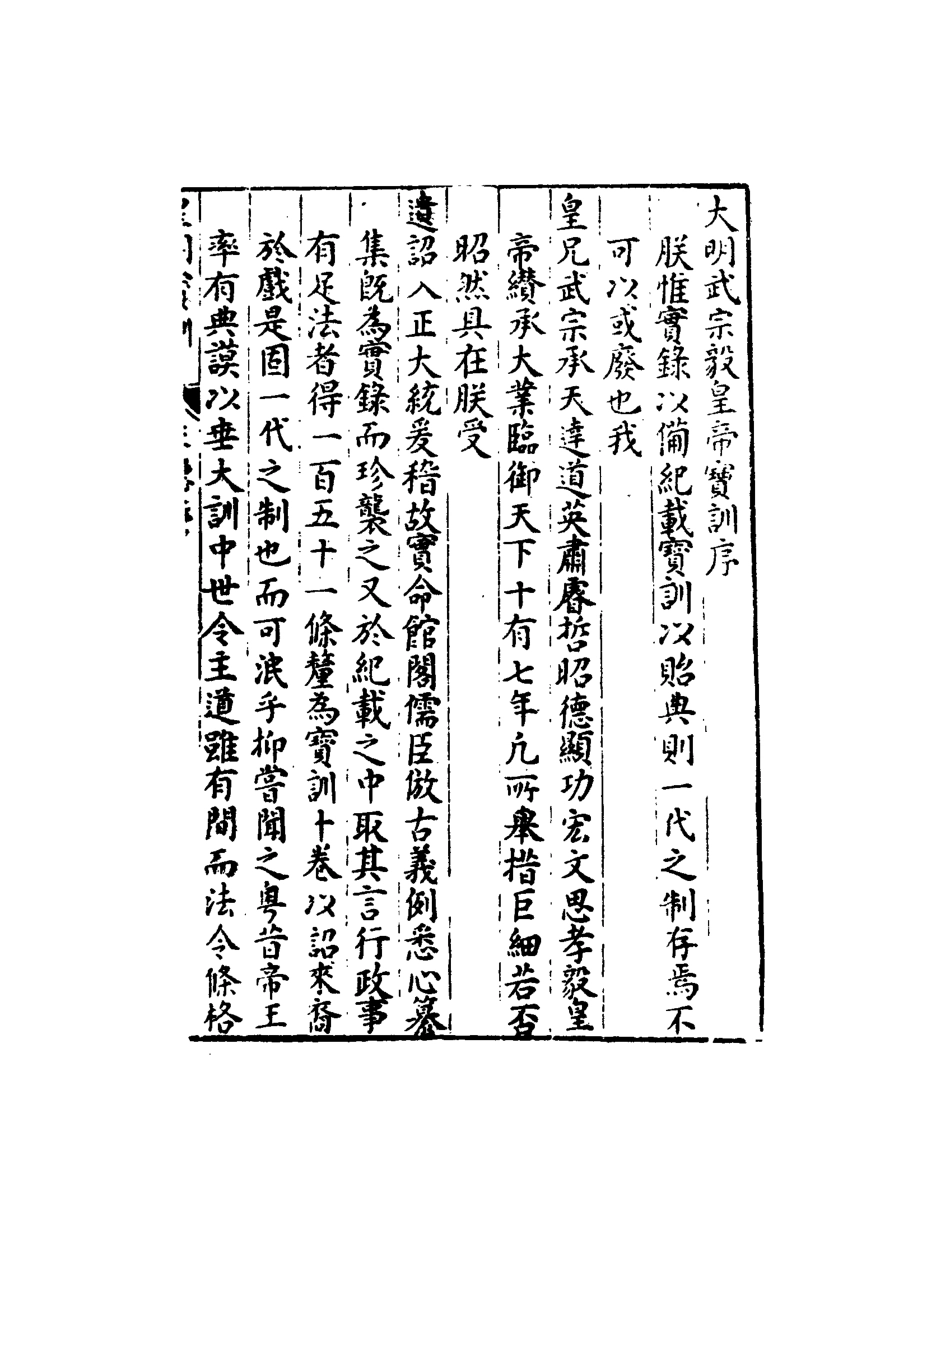 大明武宗毅皇帝寶訓序
朕惟實錄以備紀載寶訓以貽典則一代之制存焉不
可以或廢也我
皇兄武宗承天達道英肅睿哲昭德顯功宏文思孝毅皇
帝纘承大業臨御天下十有七年凢所舉措巨細若否
昭然具在朕受
遺詔入正大統爰稽故實命館閣儒臣倣古義例悉心纂
集旣為實錄而珍襲之又於紀載之中取其言行政事
有足法者得一百五十一條釐為寶訓十卷以詔來裔
於戲是固一代之制也而可泯乎抑嘗聞之粵昔帝王
率有典謨以垂大訓中世令主道雖有間而法令條格